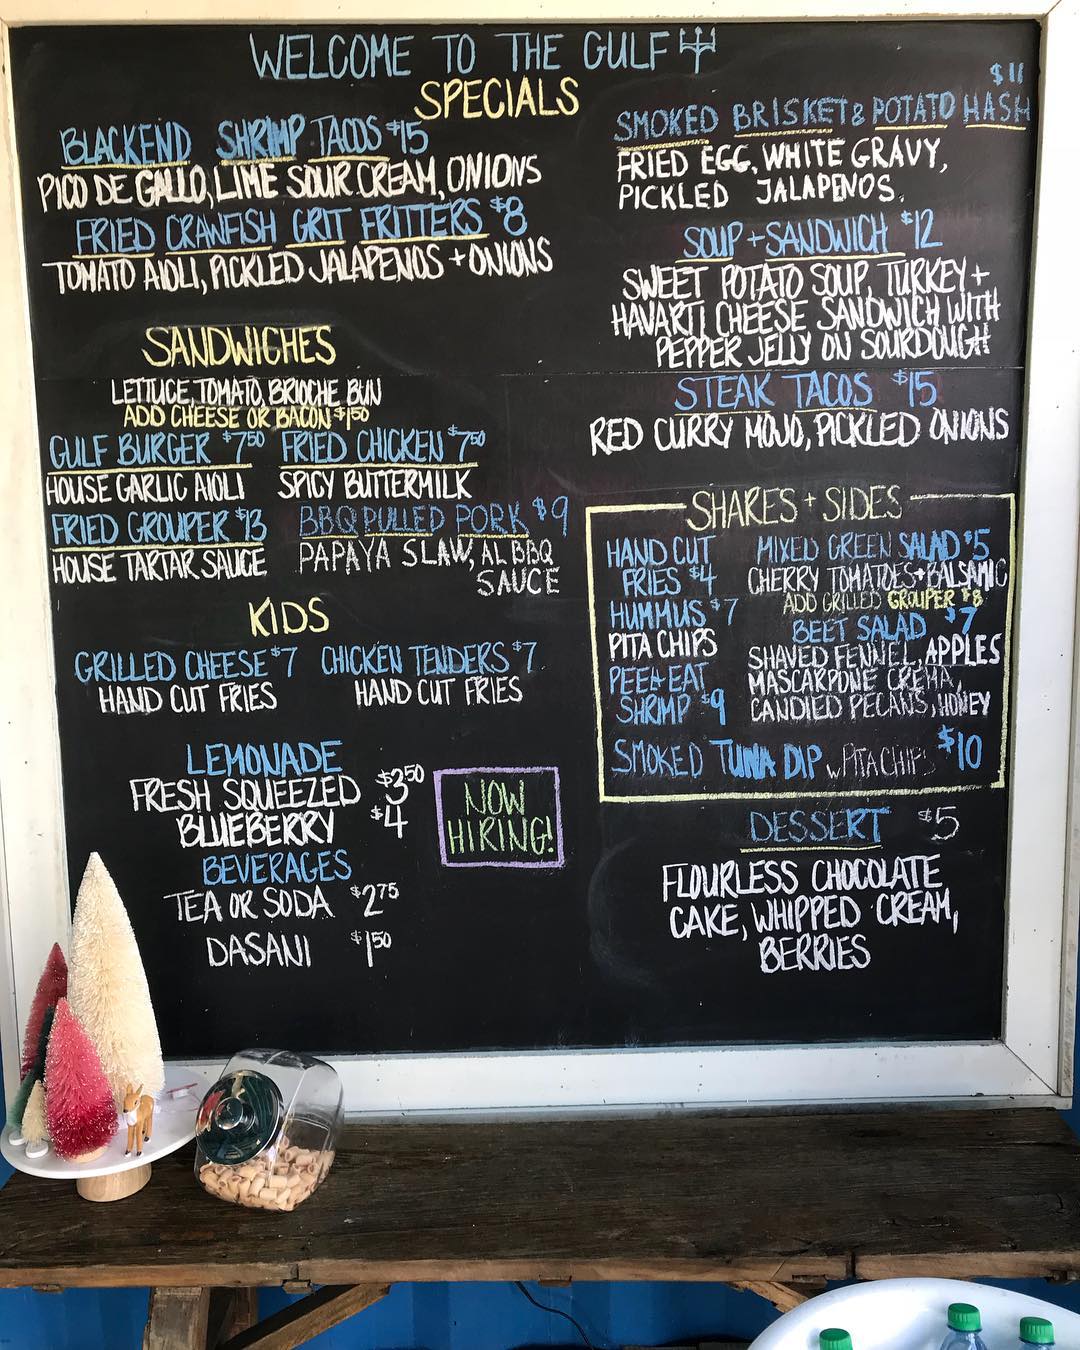 WELCOME TO THE GULF
SPECIALS
BLACKEND SHRIMP TACOS $15
PICO DE GALLO, LIME SOUR CREAM, ONIONS
FRIED CRAWFISH GRIT FRITTERS $8
TOMATO AIOLI, PICKLED JALAPENOS + ONIONS
$11
SMOKED BRISKET & POTATO HASH
FRIED EGG, WHITE GRAVY,
PICKLED JALAPENOS.
SOUP + SANDWICH $12
SWEET POTATO SOUP, TURKEY +
HAVARTI CHEESE SANDWICH WITH
PEPPER JELLY ON SOURDOUGH
STEAK TACOS $15
RED CURRY MOJO, PICKLED ONIONS
SANDWICHES
LETTUCE, TOMATO, BRIOCHE BUN
ADD CHEESE OR BACON $1.50
GULF BURGER $7.50
HOUSE GARLIC AIOLI
FRIED CHICKEN $7.50
SPICY BUTTERMILK
FRIED GROUPER $13
HOUSE TARTAR SAUCE
BBQ PULLED PORK $9
PAPAYA SLAW, AL BBQ
SAUCE
KIDS
GRILLED CHEESE $7
HAND CUT FRIES
CHICKEN TENDERS $7
HAND CUT FRIES
LEMONADE
FRESH SQUEEZED $3.50
BLUEBERRY $4
BEVERAGES
TEA OR SODA $2.75
DASANI $1.50
NOW
HIRING!
SHARES + SIDES
HAND CUT
FRIES $4
HUMMUS $7
PITA CHIPS
PEEL + EAT
SHRIMP $9
MIXED GREEN SALAD $5
CHERRY TOMATOES + BALSAMIC
ADD GRILLED GROUPER $8
BEET SALAD $7
SHAVED FENNEL, APPLES
MASCARPONE CREMA,
CANDIED PECANS, HONEY
SMOKED TUNA DIP w PITA CHIPS $10
DESSERT $5
FLOURLESS CHOCOLATE
CAKE, WHIPPED CREAM,
BERRIES